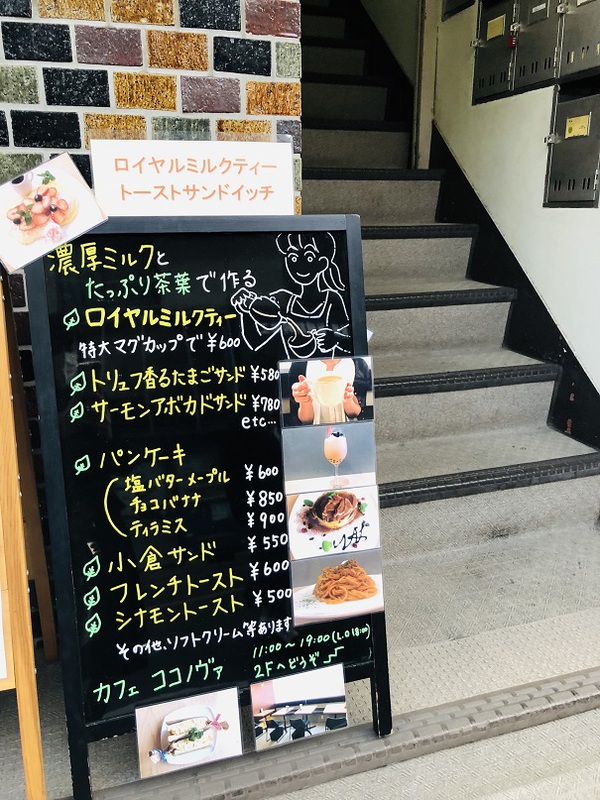 ロイヤルミルクティー
トーストサンドイッチ
濃厚ミルクと
たっぷり茶葉で作る
ロイヤルミルクティー
特大マグカップで ¥600
トリュフ香るたまごサンド ¥580
サーモンアボカドサンド ¥780
etc...
パンケーキ
塩バターメープル ¥600
チョコバナナ ¥850
ティラミス ¥900
小倉サンド ¥550
フレンチトースト ¥600
シナモントースト ¥500
その他、ソフトクリーム等あります
11:00～19:00(L.O 18:00)
カフェ ココノヴァ 2Fへどうぞ